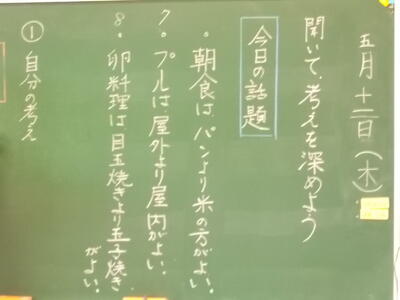 五月十二日(木)
聞いて、考えを深めよう
今日の話題
・朝食は、パンより米の方がよい。
7・プルは屋外より屋内がよい。
8・卵料理は目玉焼きより玉子焼きがよい。
①自分の考え